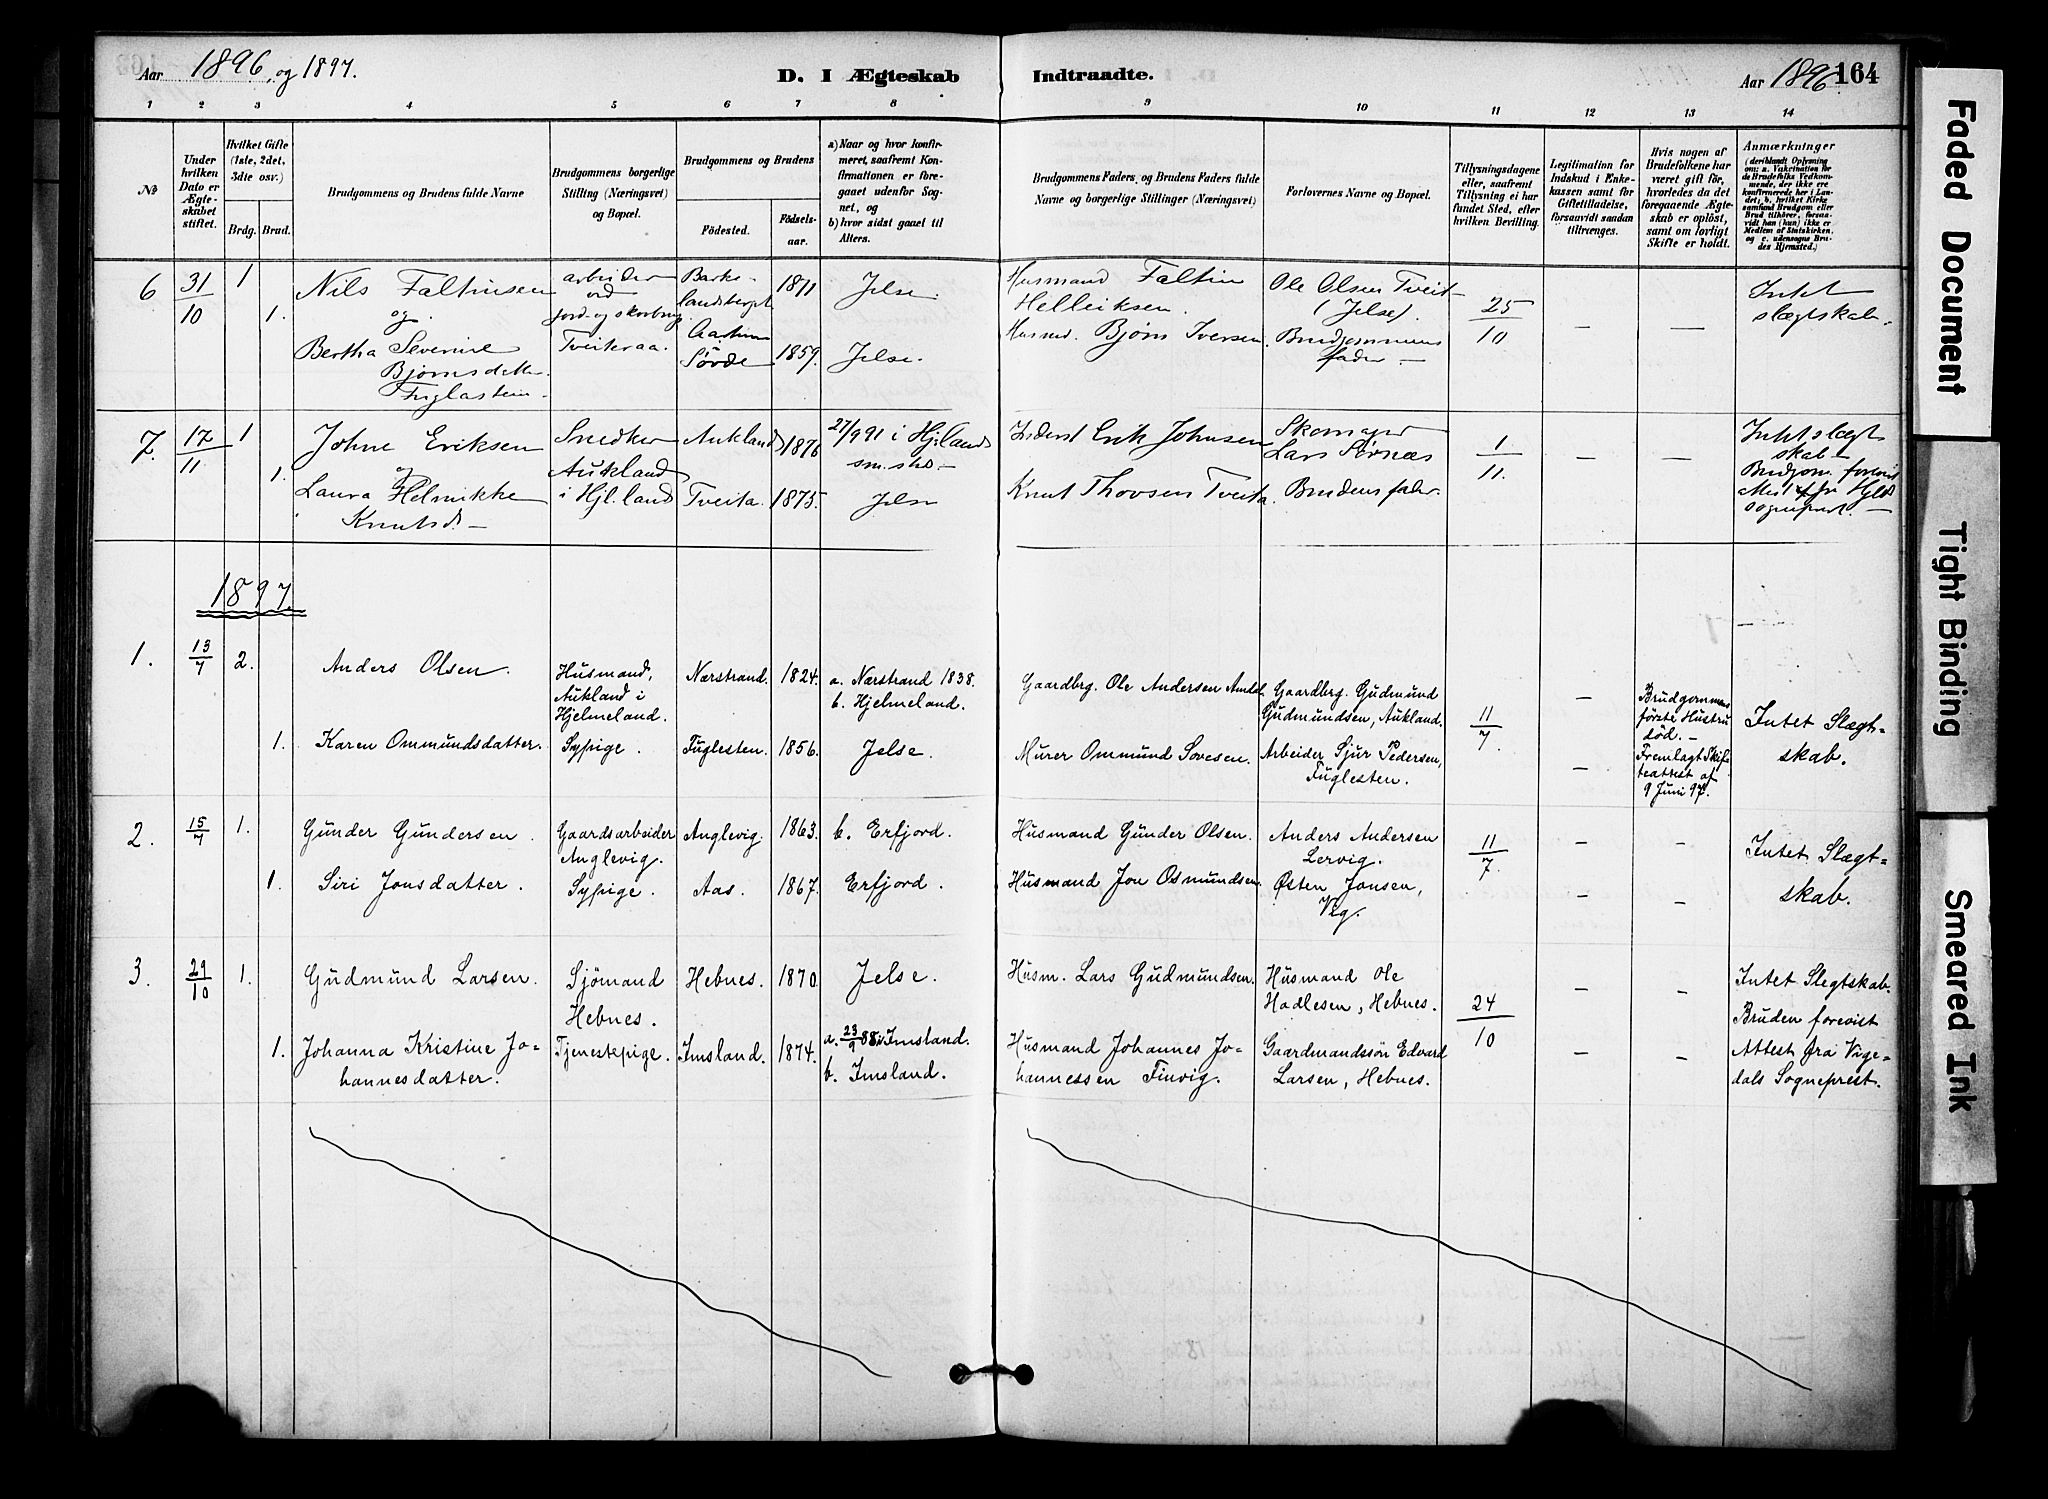 Aar 1896, og 1897.
D. I Ægteskab
Indtraadte.
Aar 1896 164
1 2 3 4 5 6 7 8
9 10 11 12 13 14
No
Under hvilken Dato er Ægteskabet stiftet.
Hvilket Gifte (1ste, 2det, 3die osv.)
Brdg. Brud.
Brudgommens og Brudens fulde Navne
Brudgommens borgerlige Stilling (Næringsvei) og Bopæl.
Brudgommens og Brudens
Födested.
Födselsaar.
a) Naar og hvor konfirmeret, saafremt Konfirmationen er foregaaet udenfor Sognet, og
b) hvor sidst gaaet til Alters.
Brudgommens Faders og Brudens Faders fulde Navne og borgerlige Stillinger (Næringsvei)
Forlovernes Navne og Bopæl.
Tillysningsdagene eller, saafremt Tillysning ei har fundet Sted, efter hvilken Bevilling.
Legitimation for Indskud i Enkekassen samt for Giftetilladelse, forsaavidt saadan tiltrænges.
Hvis nogen af Brudefolkene har været gift för, hvorledes da det foregaaende Ægteskab er oplöst, samt om lovligt Skifte er holdt.
Anmærkninger
(deriblandt Oplysning om: a. Vakcination for de Brudefolks Vedkommende, der ikke ere konfirmerede her i Landet; b. hvilket Kirkesamfund Brudgom eller Brud tilhörer, forsaavidt han (hun) ikke er Medlem af Statskirken, og c. udensogns Brudes Hjemsted.)
6 31/10 1 Nils Faltinsen arbeider ved jord og skovbrug Tveiteraa. Barkelandsberget 1871 Jelse. Husmand Faltin Helleiksen. Ole Olsen Tveit (Jelse). 25/10 — — Intet slægtskab.
og
1. Bertha Severine Bjørnsdatter Fuglastein. Sövde 1859. Jelse. Husmd. Bjørn Iversen. Brudgommens fader —
7. 17/11 1 Johne Eriksen Snedker Aukland i Hjl.land Aukland 1876 27/9 91 i Hjelands Inderst Erik Johnsen Skomager Lars Sørnæs 1/11. — — Intet slægtskab —
og
1. Laura Helmikke Knutsd. — Tveita. 1875. Jelse Knut Thovsen Tveita. Brudens fader. Brudgom. forevist Attest fra Hjld sogneprest. —
1897.
1. 13/7 2. Anders Olsen. Husmand, Aukland i Hjelmeland. Nærstrand. 1824. a. Nærstrand 1838. b. Hjelmeland. Gaardbrg. Ole Andersen Gaardbrg. Gudmund Gudmundsen, Aukland. 11/7 — Brudgommens förste Hustru död. — Fremlagt Skifteattest af 9 Juni 97. Intet Slægtskab.
1. Karen Ommundsdatter. Sypige. Fuglesten. 1856. Jelse. Murer Ommund Sovesen. Arbeider Sjur Pedersen, Fuglesten. —
2. 15/7 1. Gunder Gundersen. Gaardsarbeider Anglevig. Anglevig. 1863. b. Erfjord. Husmand Gunder Olsen. Anders Andersen Lervig. 11/7 — — Intet Slægtskab.
1. Siri Jonsdatter. Sypige. Aas. 1867. Erfjord. Husmand Jon Osmundsen. Østen Jonsen, Vig. — —
3. 29/10 1. Gudmund Larsen. Sjömand Hebnes. Hebnes. 1870. Jelse. Husm. Lars Gudmundsen. Husmand Ole Hadlesen, Hebnes. 24/10 — — Intet Slegtskab.
1. Johanna Kristine Johannesdatter. Tjenestepige. Imsland. 1874. a. 23/9 88 i Imsland. b. Imsland. Husmand Johannes Johannessen Finvig. Gaardmandssön Edvard Larsen, Hebnes. — — Bruden forevist Attest fra Vigedals Sogneprest.
Faded Document
Tight Binding
Smeared Ink